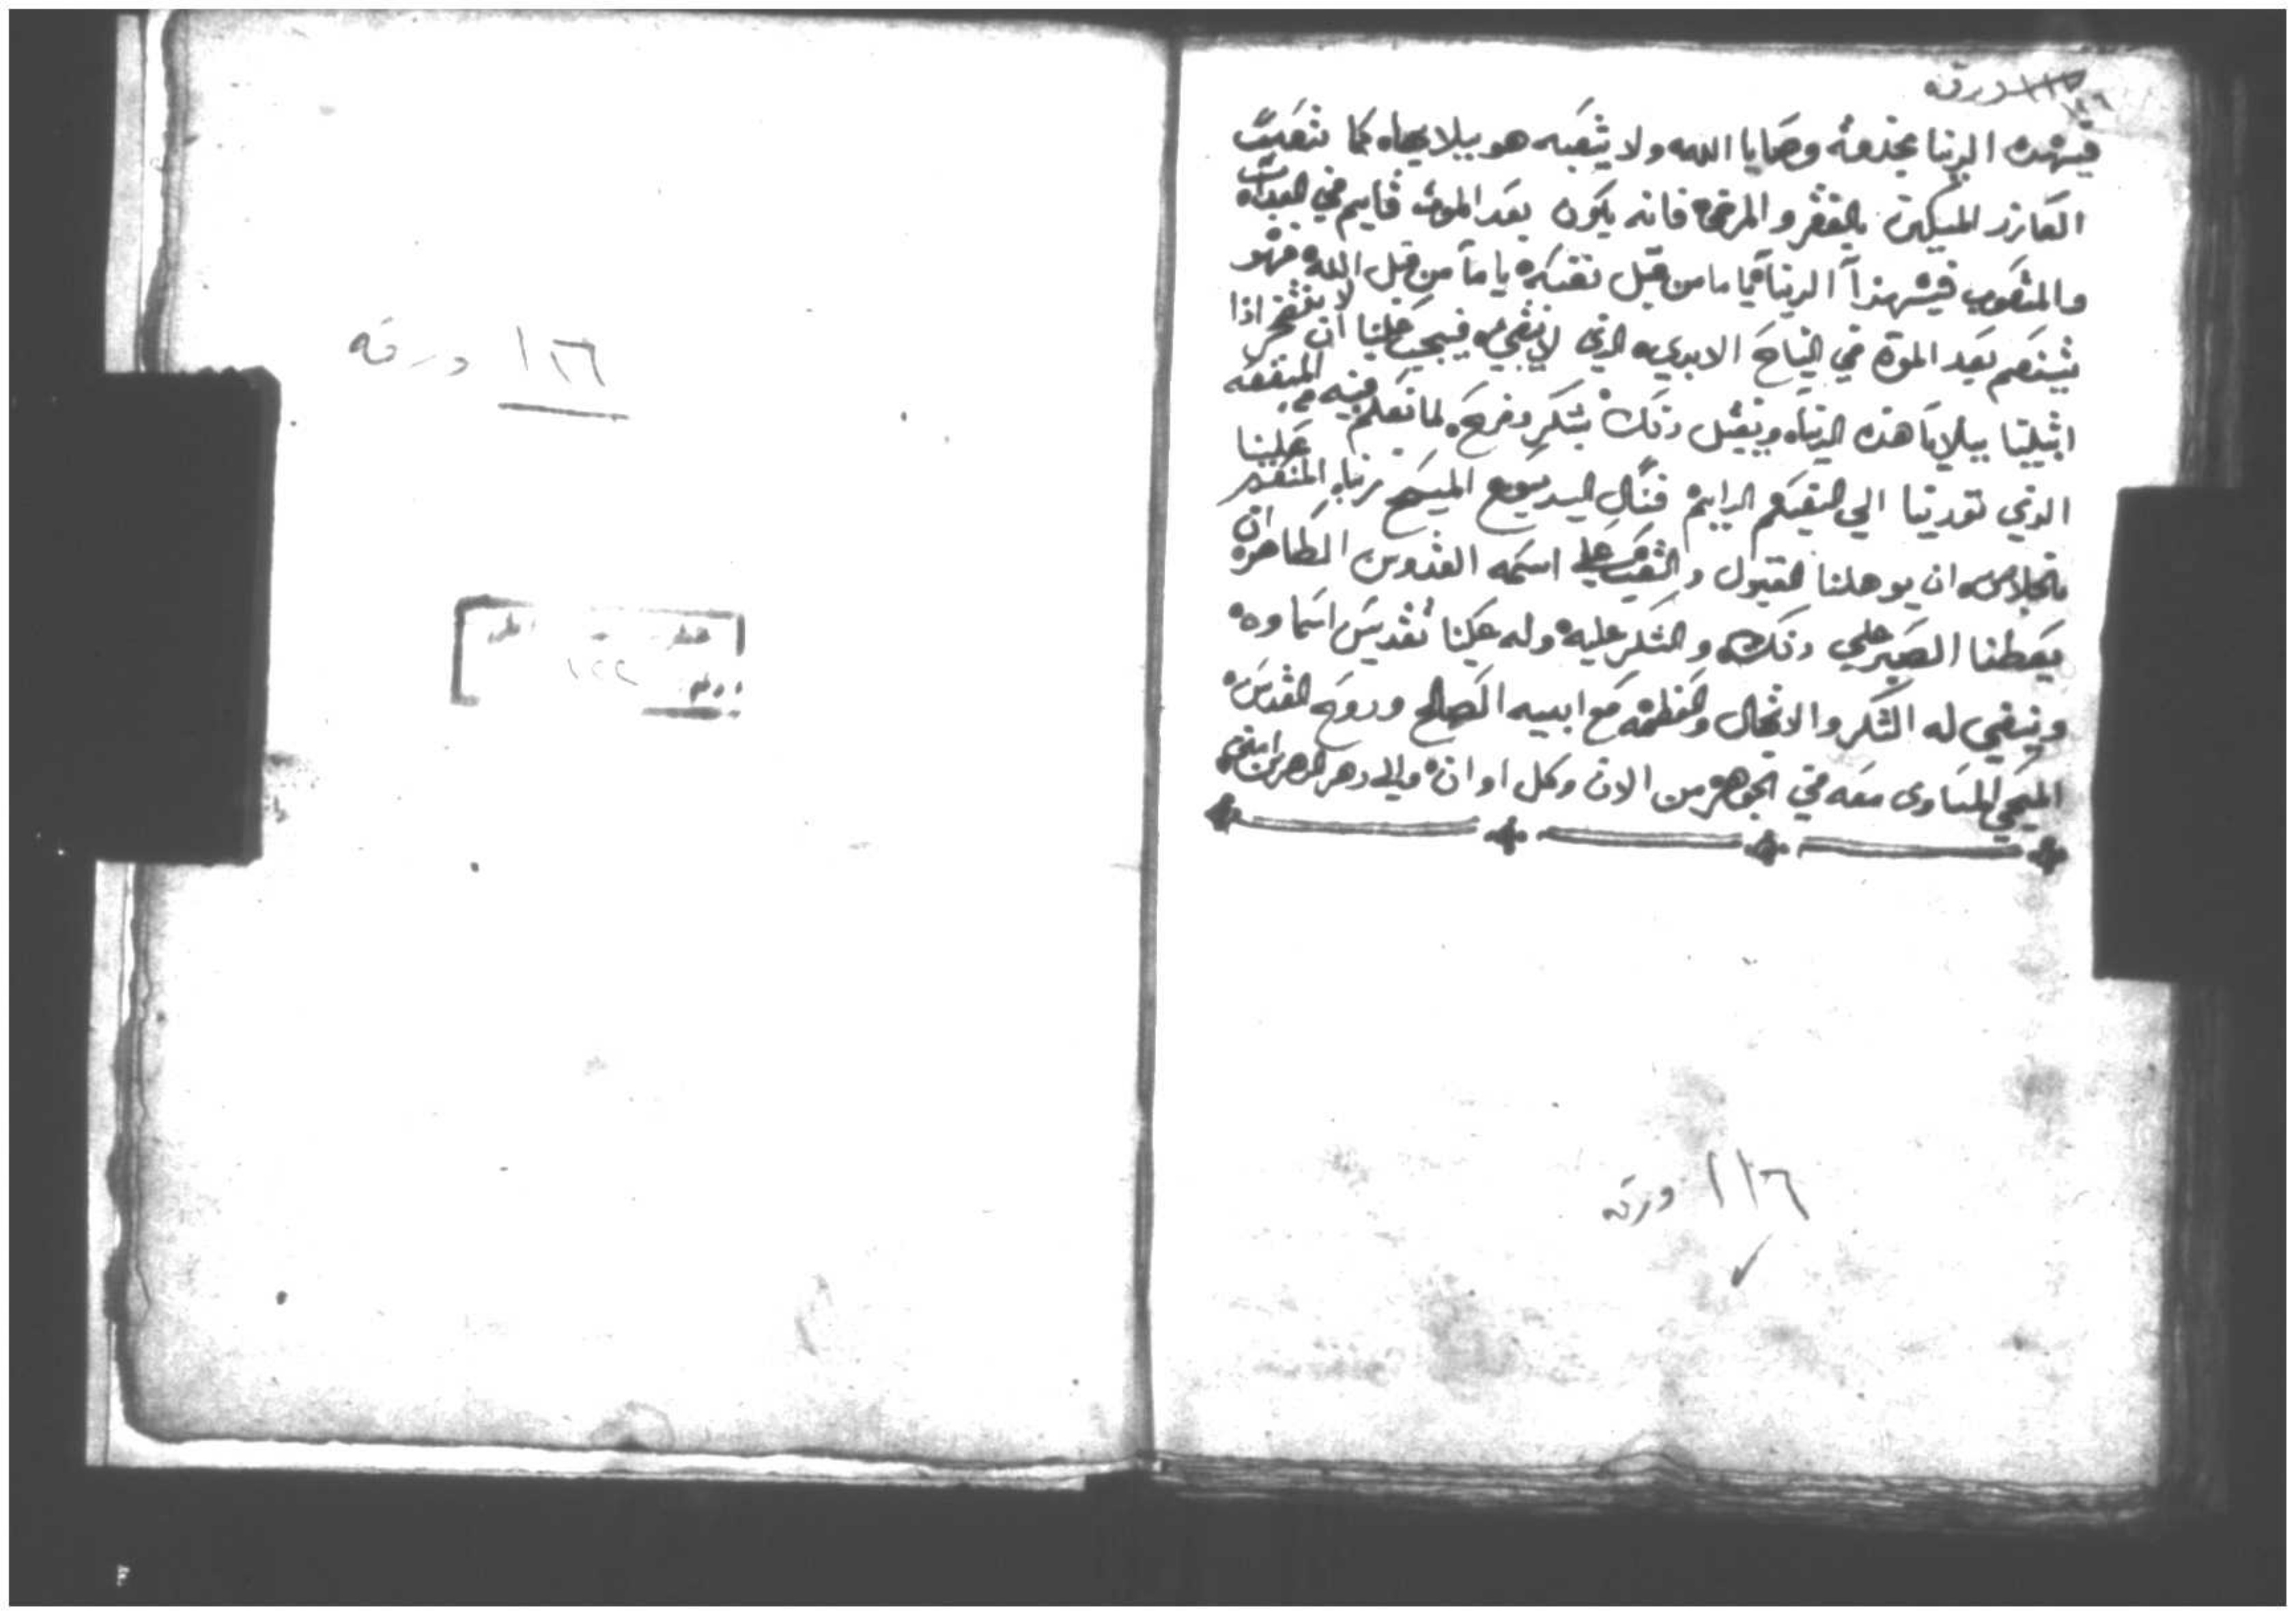 ورقه
فيهذه الدنيا بخدمة وصايا الله ولا يتعبه هو ببلاياه كما تعبت
العازر المسكين بالفقر والمرض فانه يكون بعد الموت قايم في العداب
والمتعوب فيهدا الدنيا من قبل الله فهو
يتنعم بعد الموت في النياح الابديه الدي لا ينقضي فيجب علينا ان لا نضجر اذا
ابتلينا ببلايا هذه الدنيا ونقبل دلك بشكر وفرح لما نعلم فيه من المنفعه
الدي تودينا الي النعيم الدايم فنسال السيد يسوع المسيح المنعم علينا
بخلاصه ان يوهلنا لقبول والتعب علي اسمه القدوس الطاهر وان
يعطنا الصبر علي دلك والشكر عليه وله علينا تقديس اسماوه
وينبغي له الشكر والاجلال والعظمه مع ابيه الصالح وروح القدس
المحيي المساوي معه في الجوهر من الان وكل اوان والي دهر الدهرين امين
١١٦ ورقه
١١٦ ورقه
١٢٢